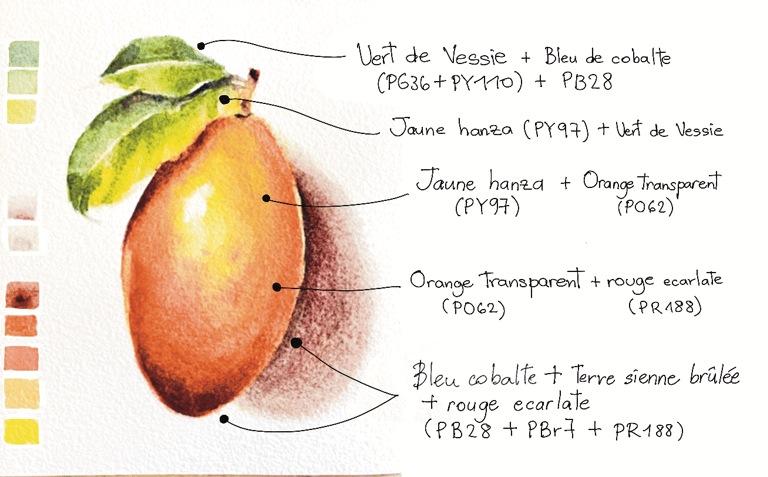 Vert de Vessie + Bleu de cobalte
(PG36 + PY110) + PB28
Jaune hanza (PY97) + Vert de Vessie
Jaune hanza + Orange transparent
(PY97) (PO62)
Orange transparent + rouge ecarlate
(PO62) (PR188)
Bleu cobalte + Terre sienne brûlée
+ rouge ecarlate
(PB28 + PBr7 + PR188)